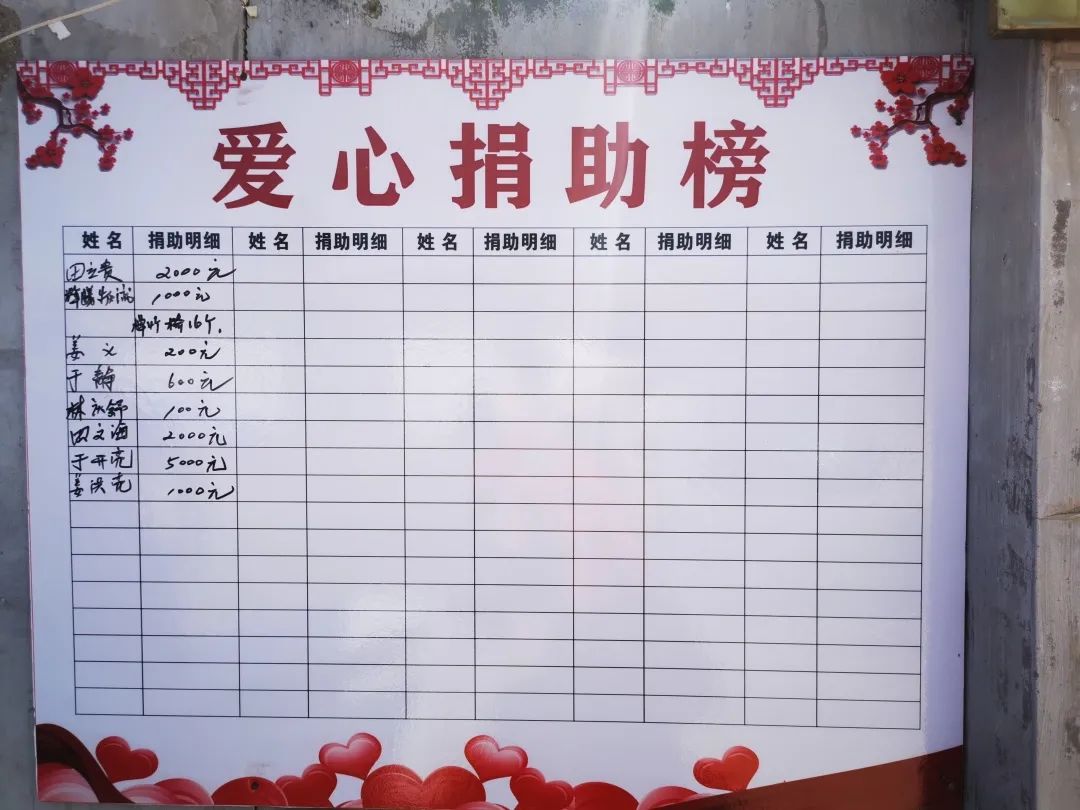 爱心捐助榜
姓名 捐助明细 姓名 捐助明细 姓名 捐助明细 姓名 捐助明细 姓名 捐助明细
田立贵 2000元
1000元
椅16个.
姜文 200元
于静 600元
林 舒 100元
田文海 2000元
于开亮 5000元
姜洪亮 1000元